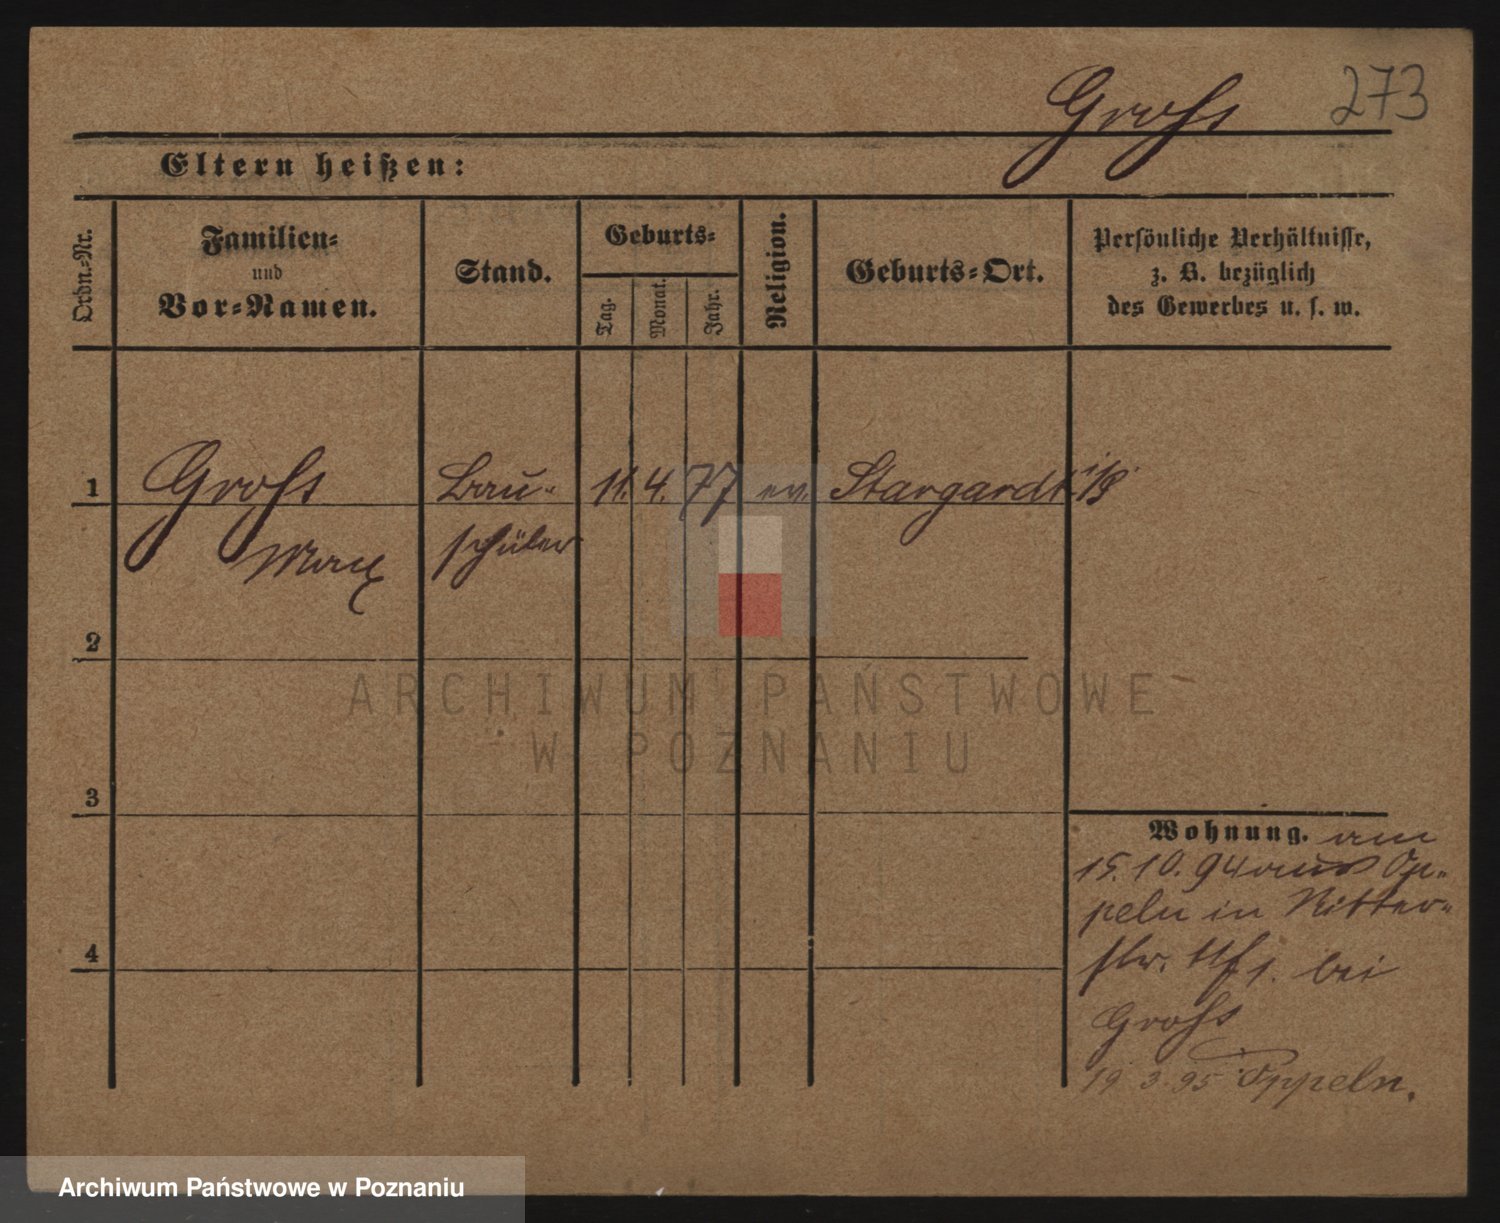 Groß 273
Eltern heißen:
Ordn.-Nr.
Familien-
und
Vor-Namen.
Stand.
Geburts-
Tag.
Monat.
Jahr.
Religion.
Geburts-Ort.
Persönliche Verhältnisse,
z. B. bezüglich
des Gewerbes u. s. w.
1 Groß Bau- 11. 4. 77 ev. Stargardt
Max schüler
2
ARCHIWUM PAŃSTWOWE
W POZNANIU
3
Wohnung. am
15.10.94 aus Op-
peln in Ritter-
str. bei
Groß
4
19.3.95 Oppeln.
Archiwum Państwowe w Poznaniu